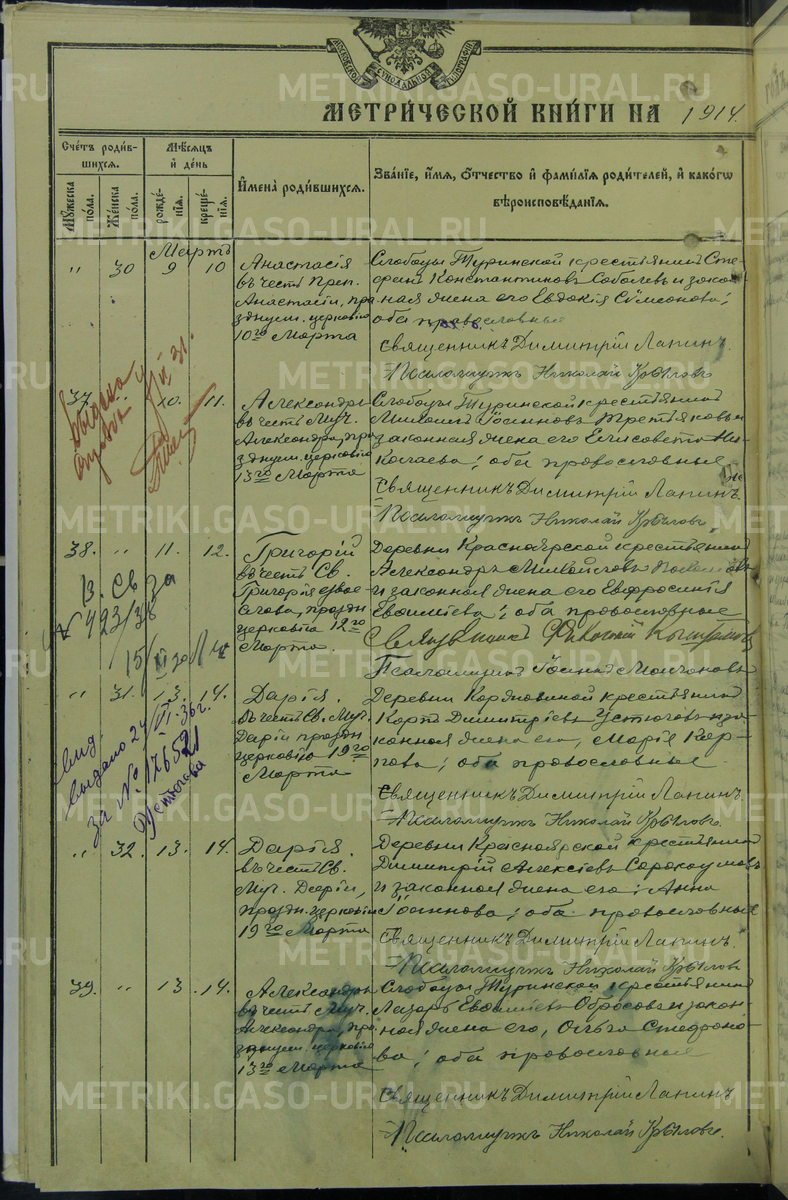 МОСКОВСКОЙ СѴНОДАЛЬНОЙ ТИПОГРАФІИ
МЕТРИЧЕСКОЙ КНИГИ НА 1914.
Счетъ родившихся.
Мѣсяцъ и день
Имена родившихся.
Званіе, имя, отчество и фамилія родителей, и какогѡ вѣроисповѣданія.
Мужеска пола.
Женска пола.
рожденія.
крещенія.
Мартъ
" 30 9 10
Анастасія
въ честь Преп.
Анастасіи, пра
зднуем. церковію
10го Марта
Слободы Туринской крестьянинъ Сте-
фанъ Константиновъ Соболевъ и закон-
ная жена его Евдокія Сѵмеонова;
оба православные
Священникъ Димитрій Лапинъ.
Псаломщикъ Николай Крыловъ.
37 " 10. 11.
Александръ
въ честь Муч.
Александра, пра
зднуем. церковію
13го Марта
Слободы Туринской крестьянинъ
Михаилъ Іоанновъ Третьяковъ и
законная жена его Елисавета Ни-
колаева; оба православные
Священникъ Димитрій Лапинъ.
Псаломщикъ Николай Крыловъ.
38. " 11. 12.
Григорій
въ честь Св.
Григорія
слова, праздн.
церковію 12го
Марта.
Деревни Красноярской крестьянинъ
Александръ
и законная жена его Евфросинія
Евѳиміева; оба православные
Священникъ
Псаломщикъ Іоаннъ
В. Св за
№ 493/38
" 31. 13. 14.
Дарія.
въ честь Св. Муч.
Даріи праздн
церковію 19го
Марта
Деревни крестьянинъ
Карпъ Димитріевъ Устюговъ и за-
конная жена его, Марія Кар-
пова; оба православные.
Священникъ Димитрій Лапинъ.
Псаломщикъ Николай Крыловъ.
выдано 24/VI.36г.
за № 17652
Устюгова
" 32. 13. 14.
Дарія.
въ честь Св.
Муч. Даріи,
праздн. церковію
19го Марта
Деревни Красноярской крестьянинъ
Димитрій Алексіевъ Сорокоумовъ
и законная жена его; Анна
Іоаннова; оба православные
Священникъ Димитрій Лапинъ.
Псаломщикъ Николай Крыловъ
39. " 13. 14.
Александръ
въ честь Муч.
Александра, пра
зднуем. церковію
13го Марта
Слободы Туринской крестьянинъ
Лазарь Евѳиміевъ Обросовъ и закон-
ная жена его, Ольга Стефано-
ва; оба православные
Священникъ Димитрій Лапинъ
Псаломщикъ Николай Крыловъ.
METRIKI.GASO-URAL.RU